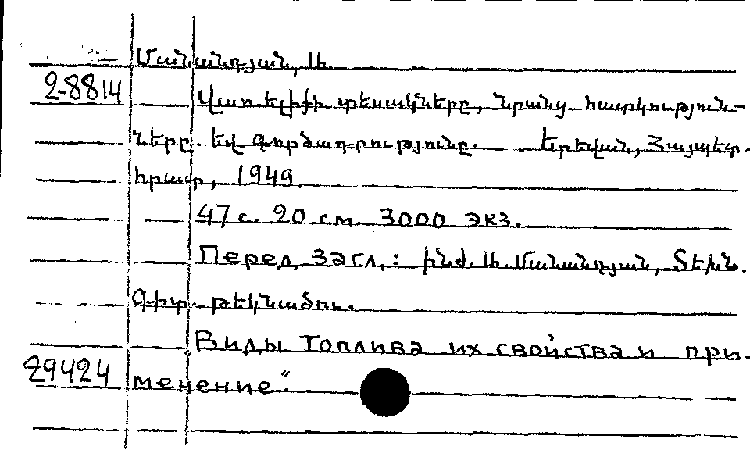 Մանանդյան, Ա.
2-8814
Վառելիքի տեսակները, նրանց հատկություն-
ները եվ գործադրությունը. Երեվան, Հայպետ-
հրատ, 1949.
47 с. 20 см 3000 экз.
Перед загл.: ինժ. Ա. Մանանդյան, Տեխն.
գիտ. թեկնածու.
Виды топлива их свойства и при-
29424 менение"